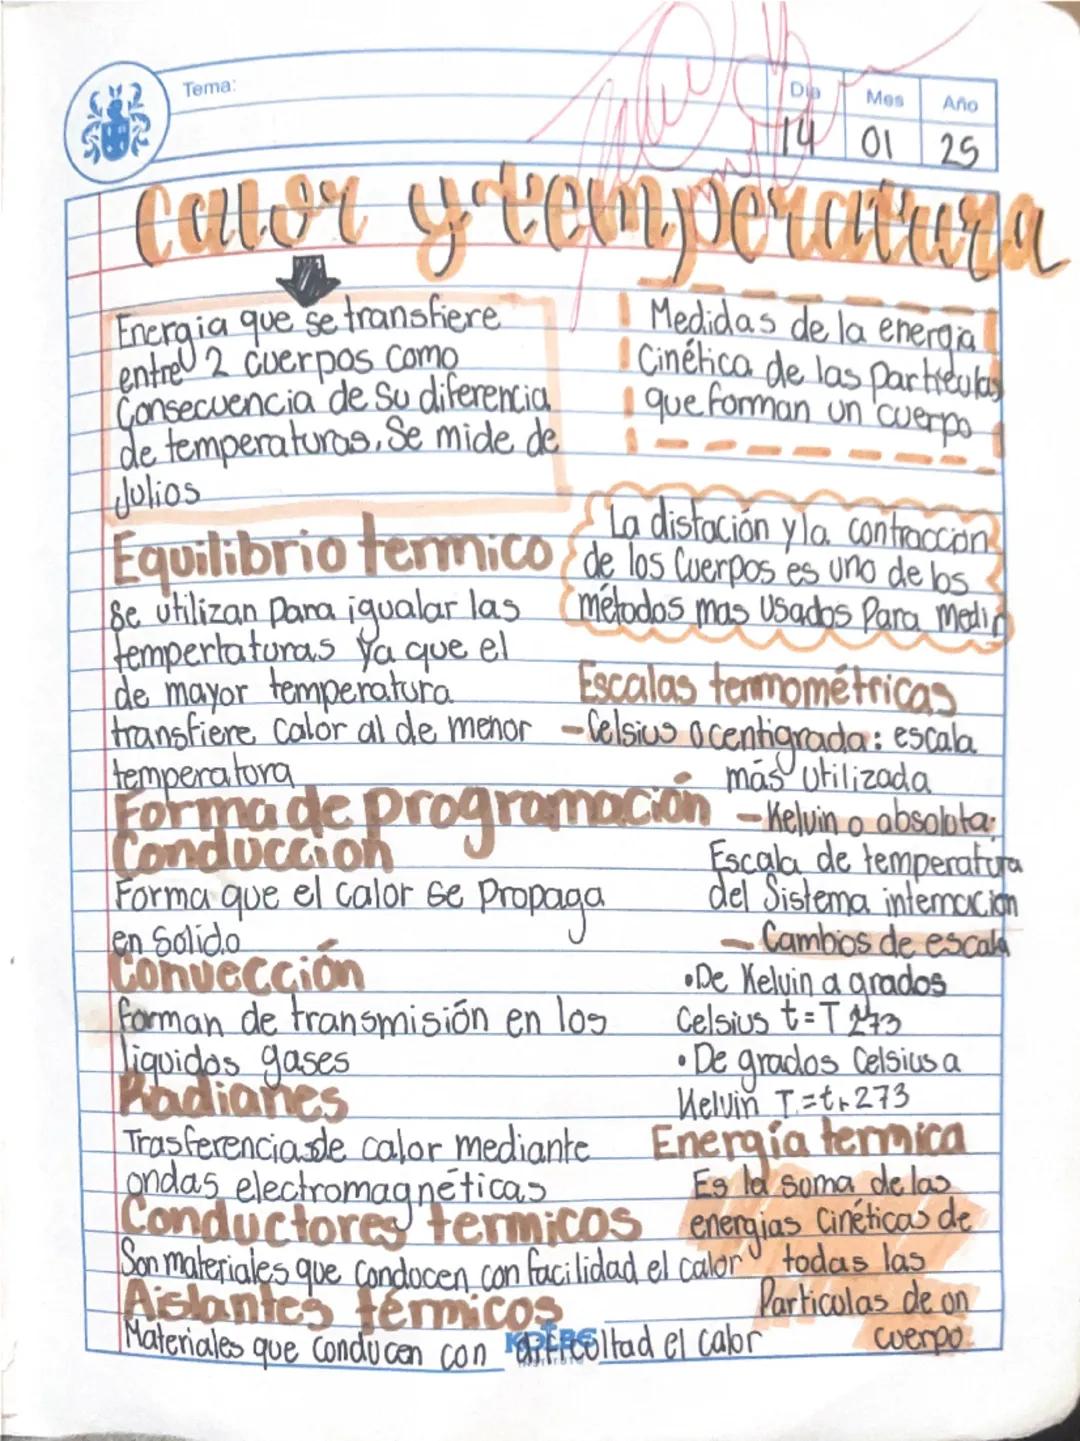 Tema:
Día
Mes
Año
14
01
25
Calor y temperatura
Energia que se transfiere
entre 2 cuerpos como
Consecuencia de su diferencia
de temperaturas. Se mide de
Julios
Medidas de la energia
Cinética de las particulas
que forman un cuerpo
La distación y la contraccion
de los Cuerpos es uno de los
métodos mas Usados Para medir
Equilibrio termico
Se utilizan para igualar las
tempertaturas Ya que el
de mayor temperatura
transfiere calor al de menor
temperatura
Escalas termométricas
- Celsius o centigrada: escala
más utilizada
- Kelvin o absoluta:
Escala de temperatura
del Sistema internacion
- Cambios de escala
•De Kelvin a grados
Celsius t=T 273
•De grados Celsius a
Kelvin T=t+273
Forma de programación
Conduccion
Forma que el calor se Propaga
en Solido
Convección
forman de transmisión en los
liquidos gases
Radianes
Trasferencia de calor mediante
ondas electromagnéticas
Energía termica
Es la suma de las
energias Cinéticas de
todas las
Particulas de un
cuerpo
Conductores termicos
Son materiales que conducen con facilidad el calor
Aislantes térmicos
Materiales que conducen con dificultad el calor